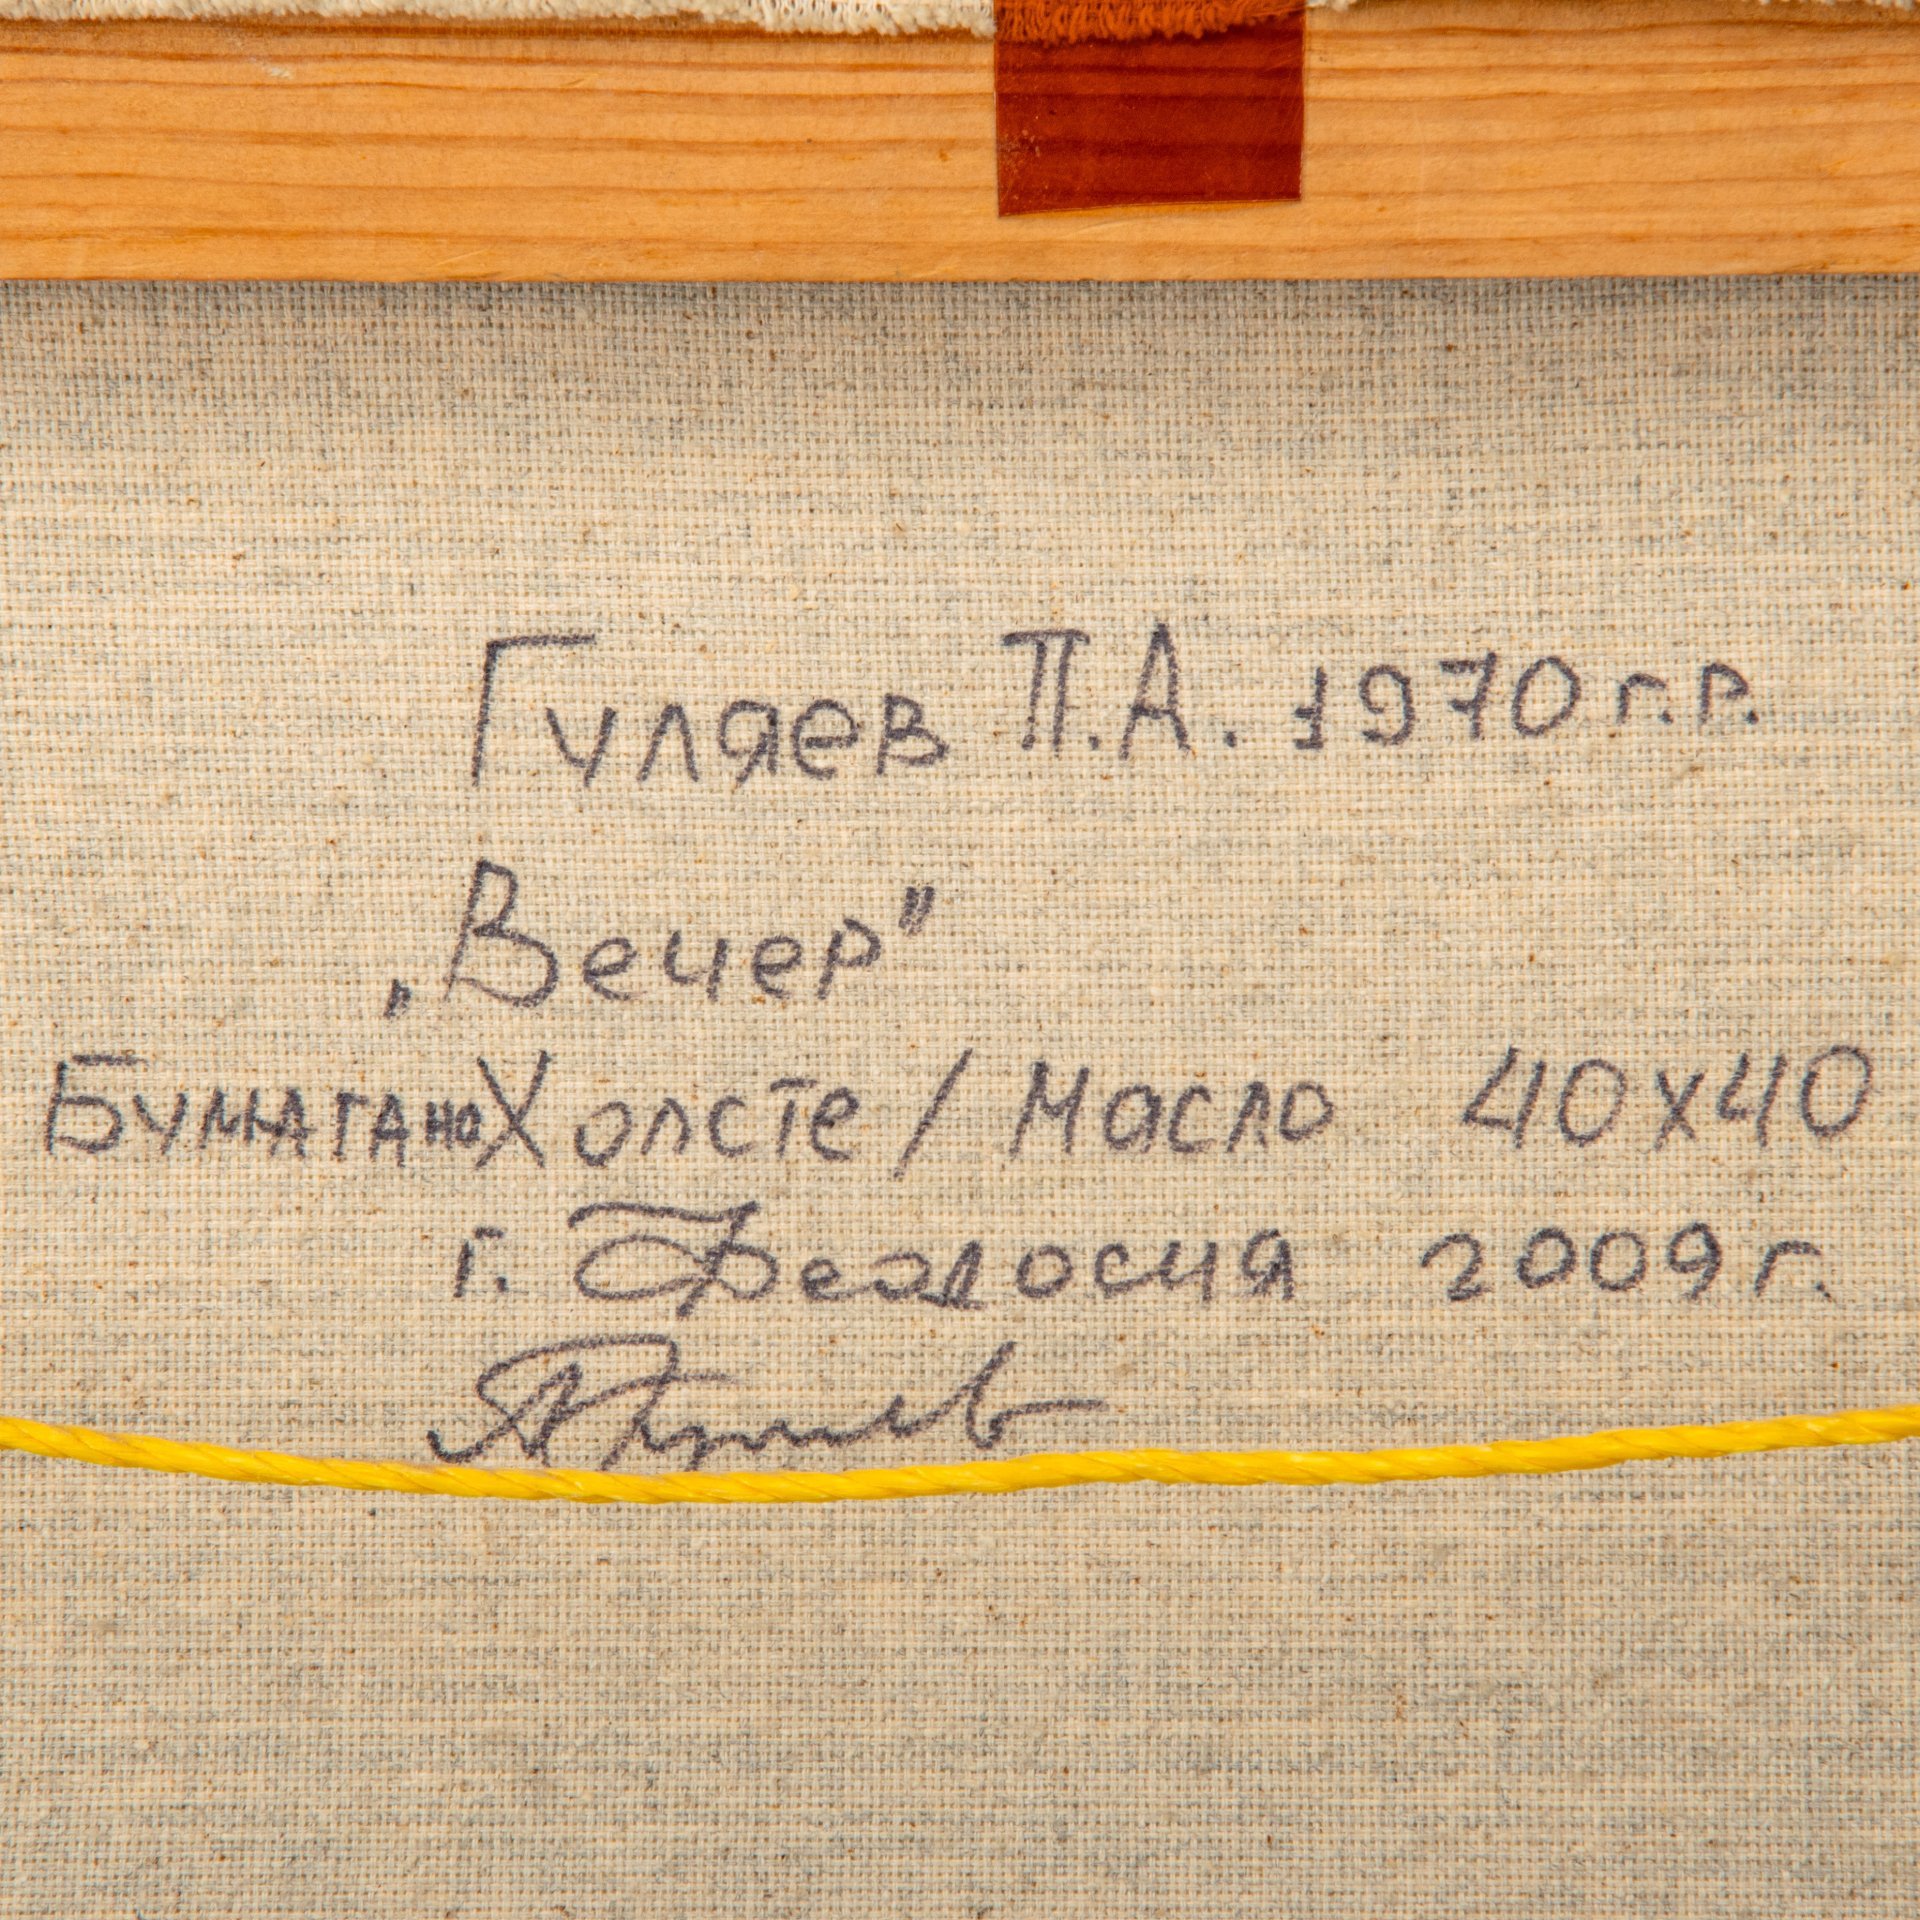 Гуляев П.А. 1970 г.р.
„Вечер"
Бумага на Холсте / Масло 40х40
г. Феодосия 2009 г.